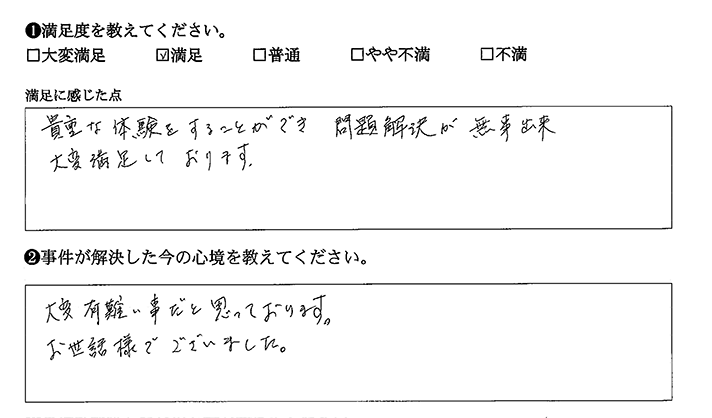 ❶満足度を教えてください。
□大変満足 ☑満足 □普通 □やや不満 □不満
満足に感じた点
貴重な体験をすることができ 問題解決が 無事出来
大変満足して おります.
❷事件が解決した今の心境を教えてください。
大変有難い事だと思っております。
お世話様で ございました。